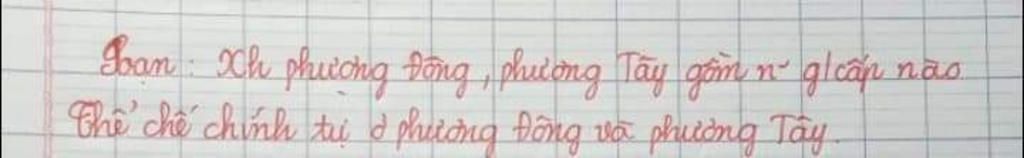 Soạn: XH phương Đông, phương Tây gồm n~ g/cấp nào
Thể chế chính trị ở phương Đông và phương Tây.